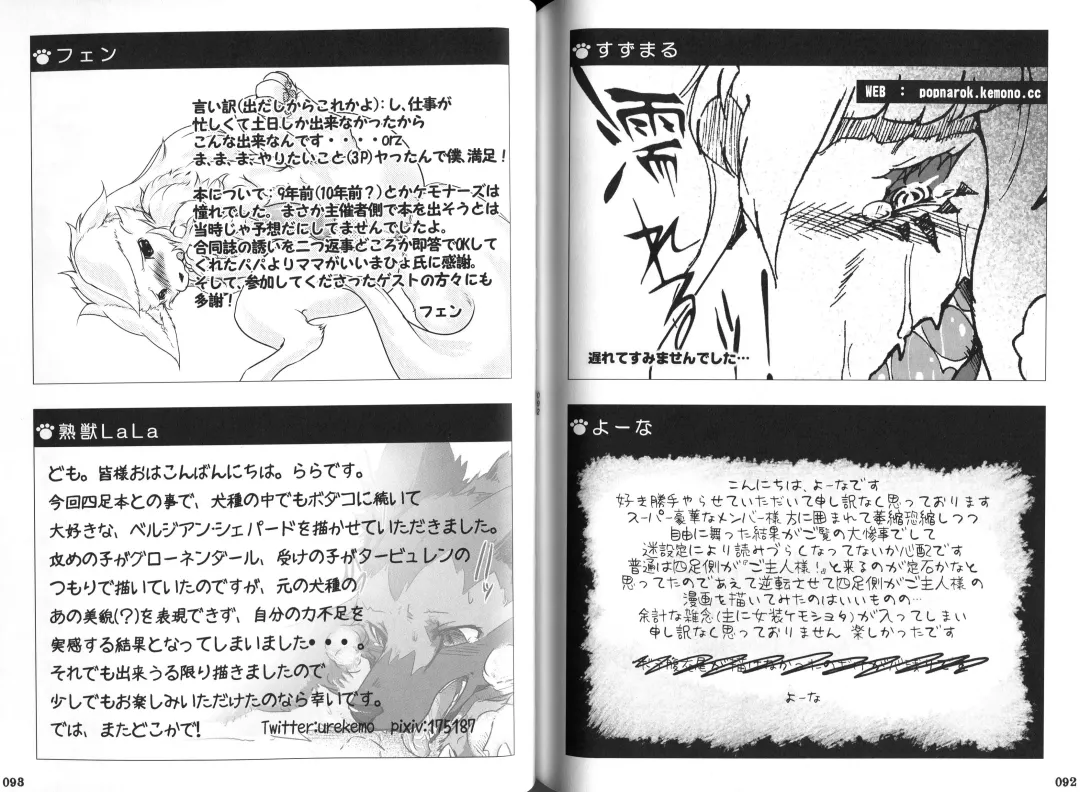 すずまる
WEB : popnarok.kemono.cc
遅れてすみませんでした…
よーな
こんにちは、よーなです
好き勝手やらせていただいて申し訳なく思っております
スーパー豪華なメンバー様方に囲まれて萎縮恐縮しつつ
自由に舞った結果がご覧の大惨事でして
迷設定により読みづらくなってないか心配です
普通は四足側が『ご主人様!』と来るのが定石かなと
思ってたのであえて逆転させて四足側がご主人様の
漫画を描いてみたのはいいものの…
余計な雑念(主に女装ケモショタ)が入ってしまい
申し訳なく思っておりません 楽しかったです
よーな
092
フェン
言い訳(出だしからこれかよ):し、仕事が
忙しくて土日しか出来なかったから
こんな出来なんです・・・・orz
ま、ま、ま、やりたいこと(3P)ヤったんで僕、満足!
本について; 9年前(10年前?)とかケモナーズは
憧れでした。まさか主催者側で本を出そうとは
当時じゃ予想だにしてませんでしたよ。
合同誌の誘いを二つ返事どころか即答でOKして
くれたパパよりママがいいまひょ氏に感謝。
そして、参加してくださったゲストの方々にも
多謝!
フェン
熟獣LaLa
ども。皆様おはこんばんにちは。ららです。
今回四足本との事で、犬種の中でもボダコに続いて
大好きな、ベルジアン・シェパードを描かせていただきました。
攻めの子がグローネンダール、受けの子がタービュレンの
つもりで描いていたのですが、元の犬種の
あの美貌(?)を表現できず、自分の力不足を
実感する結果となってしまいました・・・。
それでも出来うる限り描きましたので
少しでもお楽しみいただけたのなら幸いです。
では、またどこかで!
Twitter:urekemo pixiv:175187
093
092